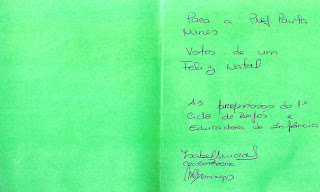 Para a Prof Paula
Nunes
Votos de um
Feliz Natal
As professoras do 1º
Ciclo de Beijós e
Educadora de Infância